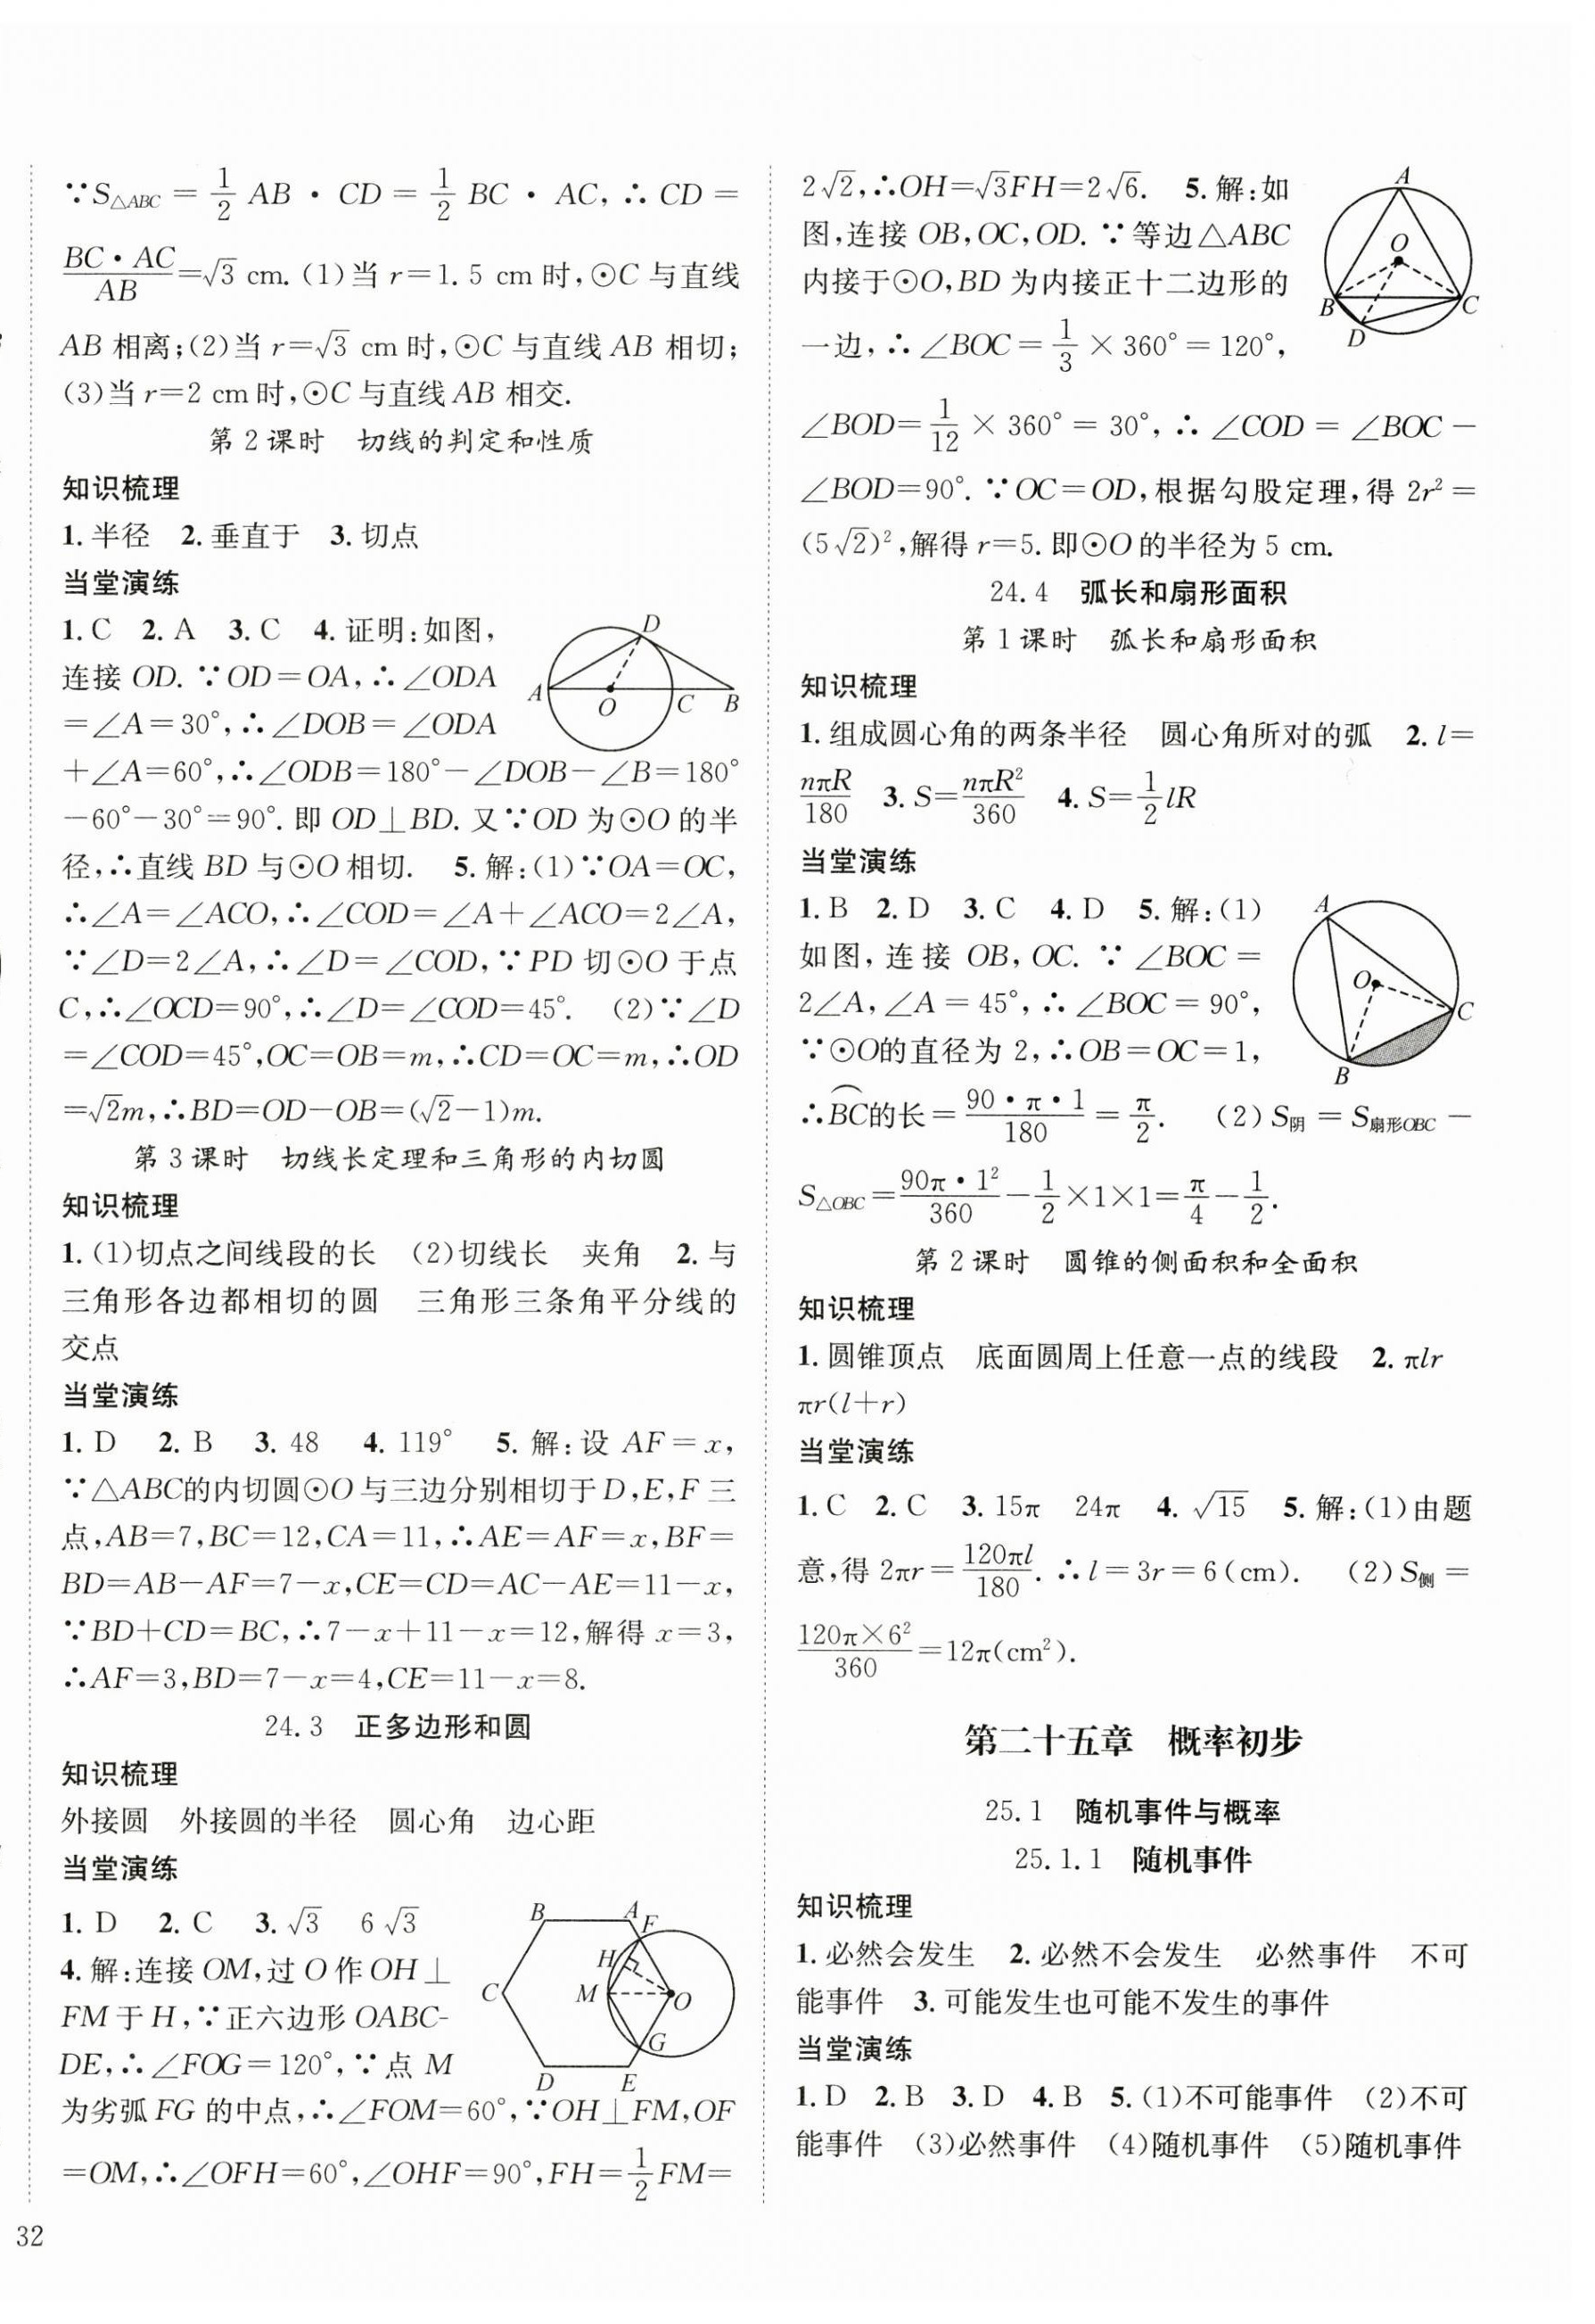 ∵S△ABC = 1/2 AB · CD = 1/2 BC · AC, ∴ CD =
BC·AC/AB=√3 cm. (1)当 r=1.5 cm 时,⊙C 与直线
AB 相离;(2)当 r=√3 cm 时,⊙C 与直线 AB 相切;
(3)当 r=2 cm 时,⊙C 与直线 AB 相交.
第 2 课时　切线的判定和性质
知识梳理
1. 半径　2. 垂直于　3. 切点
当堂演练
1. C　2. A　3. C　4. 证明:如图,
连接 OD. ∵OD=OA,∴∠ODA
=∠A=30°,∴∠DOB=∠ODA
+∠A=60°,∴∠ODB=180°-∠DOB-∠B=180°
-60°-30°=90°. 即 OD⊥BD. 又∵OD 为⊙O 的半
径,∴直线 BD 与⊙O 相切.　5. 解:(1)∵OA=OC,
∴∠A=∠ACO,∴∠COD=∠A+∠ACO=2∠A,
∵∠D=2∠A,∴∠D=∠COD,∵PD 切⊙O 于点
C,∴∠OCD=90°,∴∠D=∠COD=45°.　(2)∵∠D
=∠COD=45°,OC=OB=m,∴CD=OC=m,∴OD
=√2m,∴BD=OD-OB=(√2-1)m.
D
A
O
C
B
第 3 课时　切线长定理和三角形的内切圆
知识梳理
1. (1)切点之间线段的长　(2)切线长　夹角　2. 与
三角形各边都相切的圆　三角形三条角平分线的
交点
当堂演练
1. D　2. B　3. 48　4. 119°　5. 解:设 AF=x,
∵△ABC的内切圆⊙O 与三边分别相切于 D,E,F 三
点,AB=7,BC=12,CA=11,∴AE=AF=x,BF=
BD=AB-AF=7-x,CE=CD=AC-AE=11-x,
∵BD+CD=BC,∴7-x+11-x=12,解得 x=3,
∴AF=3,BD=7-x=4,CE=11-x=8.
24.3　正多边形和圆
知识梳理
外接圆　外接圆的半径　圆心角　边心距
当堂演练
1. D　2. C　3. √3　6√3
4. 解:连接 OM,过 O 作 OH⊥
FM 于 H,∵正六边形 OABC-
DE,∴∠FOG=120°,∵点 M
为劣弧 FG 的中点,∴∠FOM=60°,∵OH⊥FM,OF
=OM,∴∠OFH=60°,∠OHF=90°,FH=1/2 FM=
B
A
F
H
C
M
O
G
D
E
32
2√2,∴OH=√3FH=2√6.　5. 解:如
图,连接 OB,OC,OD. ∵等边△ABC
内接于⊙O,BD 为内接正十二边形的
一边,∴∠BOC=1/3×360°=120°,
∠BOD=1/12×360°=30°,∴∠COD=∠BOC-
∠BOD=90°. ∵OC=OD,根据勾股定理,得 2r²=
(5√2)²,解得 r=5. 即⊙O 的半径为 5 cm.
A
O
B
C
D
24.4　弧长和扇形面积
第 1 课时　弧长和扇形面积
知识梳理
1. 组成圆心角的两条半径　圆心角所对的弧　2. l=
nπR/180　3. S=nπR²/360　4. S=1/2 lR
当堂演练
1. B　2. D　3. C　4. D　5. 解:(1)
如图,连接 OB,OC. ∵∠BOC=
2∠A,∠A=45°,∴∠BOC=90°,
∵⊙O的直径为 2,∴OB=OC=1,
∴⌒BC的长=90·π·1/180=π/2.　(2)S阴=S扇形OBC-
S△OBC=90π·1²/360-1/2×1×1=π/4-1/2.
A
O
C
B
第 2 课时　圆锥的侧面积和全面积
知识梳理
1. 圆锥顶点　底面圆周上任意一点的线段　2. πlr
πr(l+r)
当堂演练
1. C　2. C　3. 15π　24π　4. √15　5. 解:(1)由题
意,得 2πr=120πl/180. ∴l=3r=6(cm).　(2)S侧=
120π×6²/360=12π(cm²).
第二十五章　概率初步
25.1　随机事件与概率
25.1.1　随机事件
知识梳理
1. 必然会发生　2. 必然不会发生　必然事件　不可
能事件　3. 可能发生也可能不发生的事件
当堂演练
1. D　2. B　3. D　4. B　5. (1)不可能事件　(2)不可
能事件　(3)必然事件　(4)随机事件　(5)随机事件